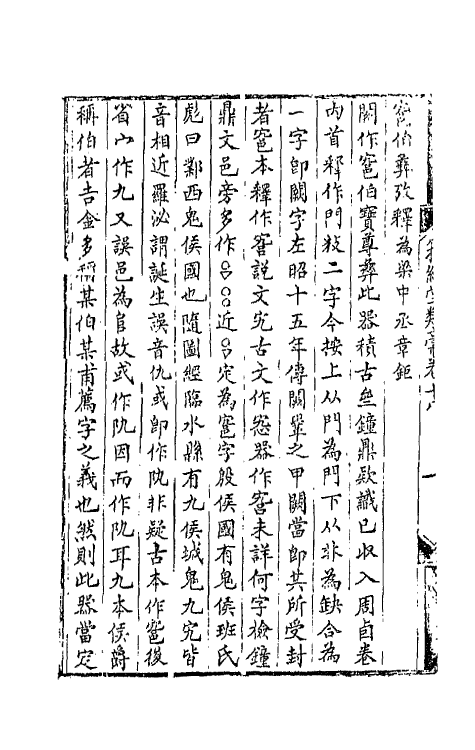 窓伯彝攷釋為梁中丞章鉅
闕作窓伯寶尊彝此器積古齋鐘鼎欵識已收入周卣卷
內首釋作門敄二字今按上从門為門下从非為缺合為
一字卽闕字左昭十五年傳闕鞏之甲闕當卽其所受封
者窓本釋作窖說文宄古文作㤄器作窖未詳何字檢鐘
鼎文邑旁多作近定為字殷侯國有鬼侯班氏
彪曰鄴西鬼侯國也隨圖經臨水縣有九侯城鬼九宄皆
音相近羅泌謂誕生誤音仇或卽作㧄非疑古本作後
省宀作九又誤邑為𨸏故或作㧄因而作阢耳九本侯爵
稱伯者吉金多稱某伯某甫薦字之義也然則此器當定